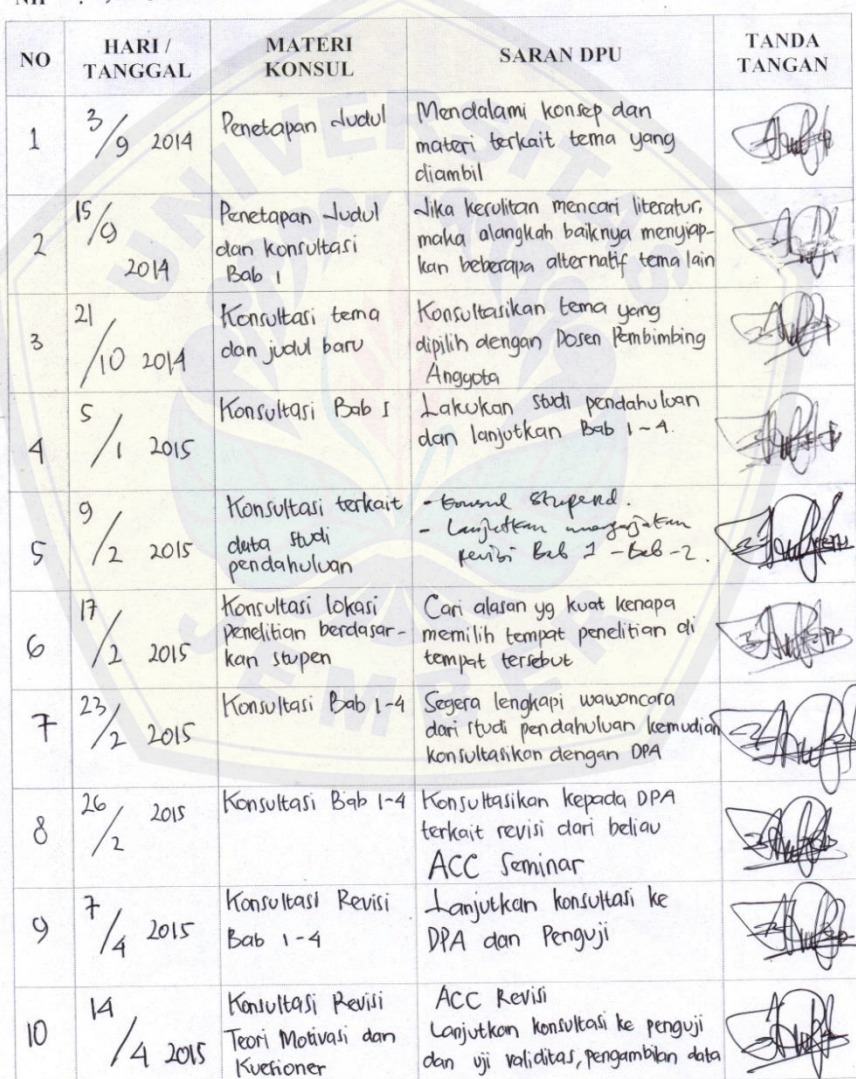 NO
HARI /
TANGGAL
MATERI
KONSUL
SARAN DPU
TANDA
TANGAN
1
3/9 2014
Penetapan Judul
Mendalami konsep dan
materi terkait tema yang
diambil
2
15/9
2014
Penetapan Judul
dan konsultasi
Bab 1
Jika kesulitan mencari literatur,
maka alangkah baiknya menyiap-
kan beberapa alternatif tema lain
3
21/10 2014
Konsultasi tema
dan judul baru
Konsultasikan tema yang
dipilih dengan Dosen Pembimbing
Anggota
4
5/1 2015
Konsultasi Bab I
Lakukan studi pendahuluan
dan lanjutkan Bab 1-4.
5
9/2 2015
Konsultasi terkait
data studi
pendahuluan
- stupend.
- Lanjutkan mengerjakan
revisi Bab 1 - Bab -2.
6
17/2 2015
Konsultasi lokasi
penelitian berdasar-
kan stupen
Cari alasan yg kuat kenapa
memilih tempat penelitian di
tempat tersebut
7
23/2 2015
Konsultasi Bab 1-4
Segera lengkapi wawancara
dari studi pendahuluan kemudian
konsultasikan dengan DPA
8
26/2 2015
Konsultasi Bab 1-4
Konsultasikan kepada DPA
terkait revisi dari beliau
ACC Seminar
9
7/4 2015
Konsultasi Revisi
Bab 1-4
Lanjutkan konsultasi ke
DPA dan Penguji
10
14/4 2015
Konsultasi Revisi
Teori Motivasi dan
Kuesioner
ACC Revisi
Lanjutkan konsultasi ke penguji
dan uji validitas, pengambilan data
UNIVERSITAS
JEMBER